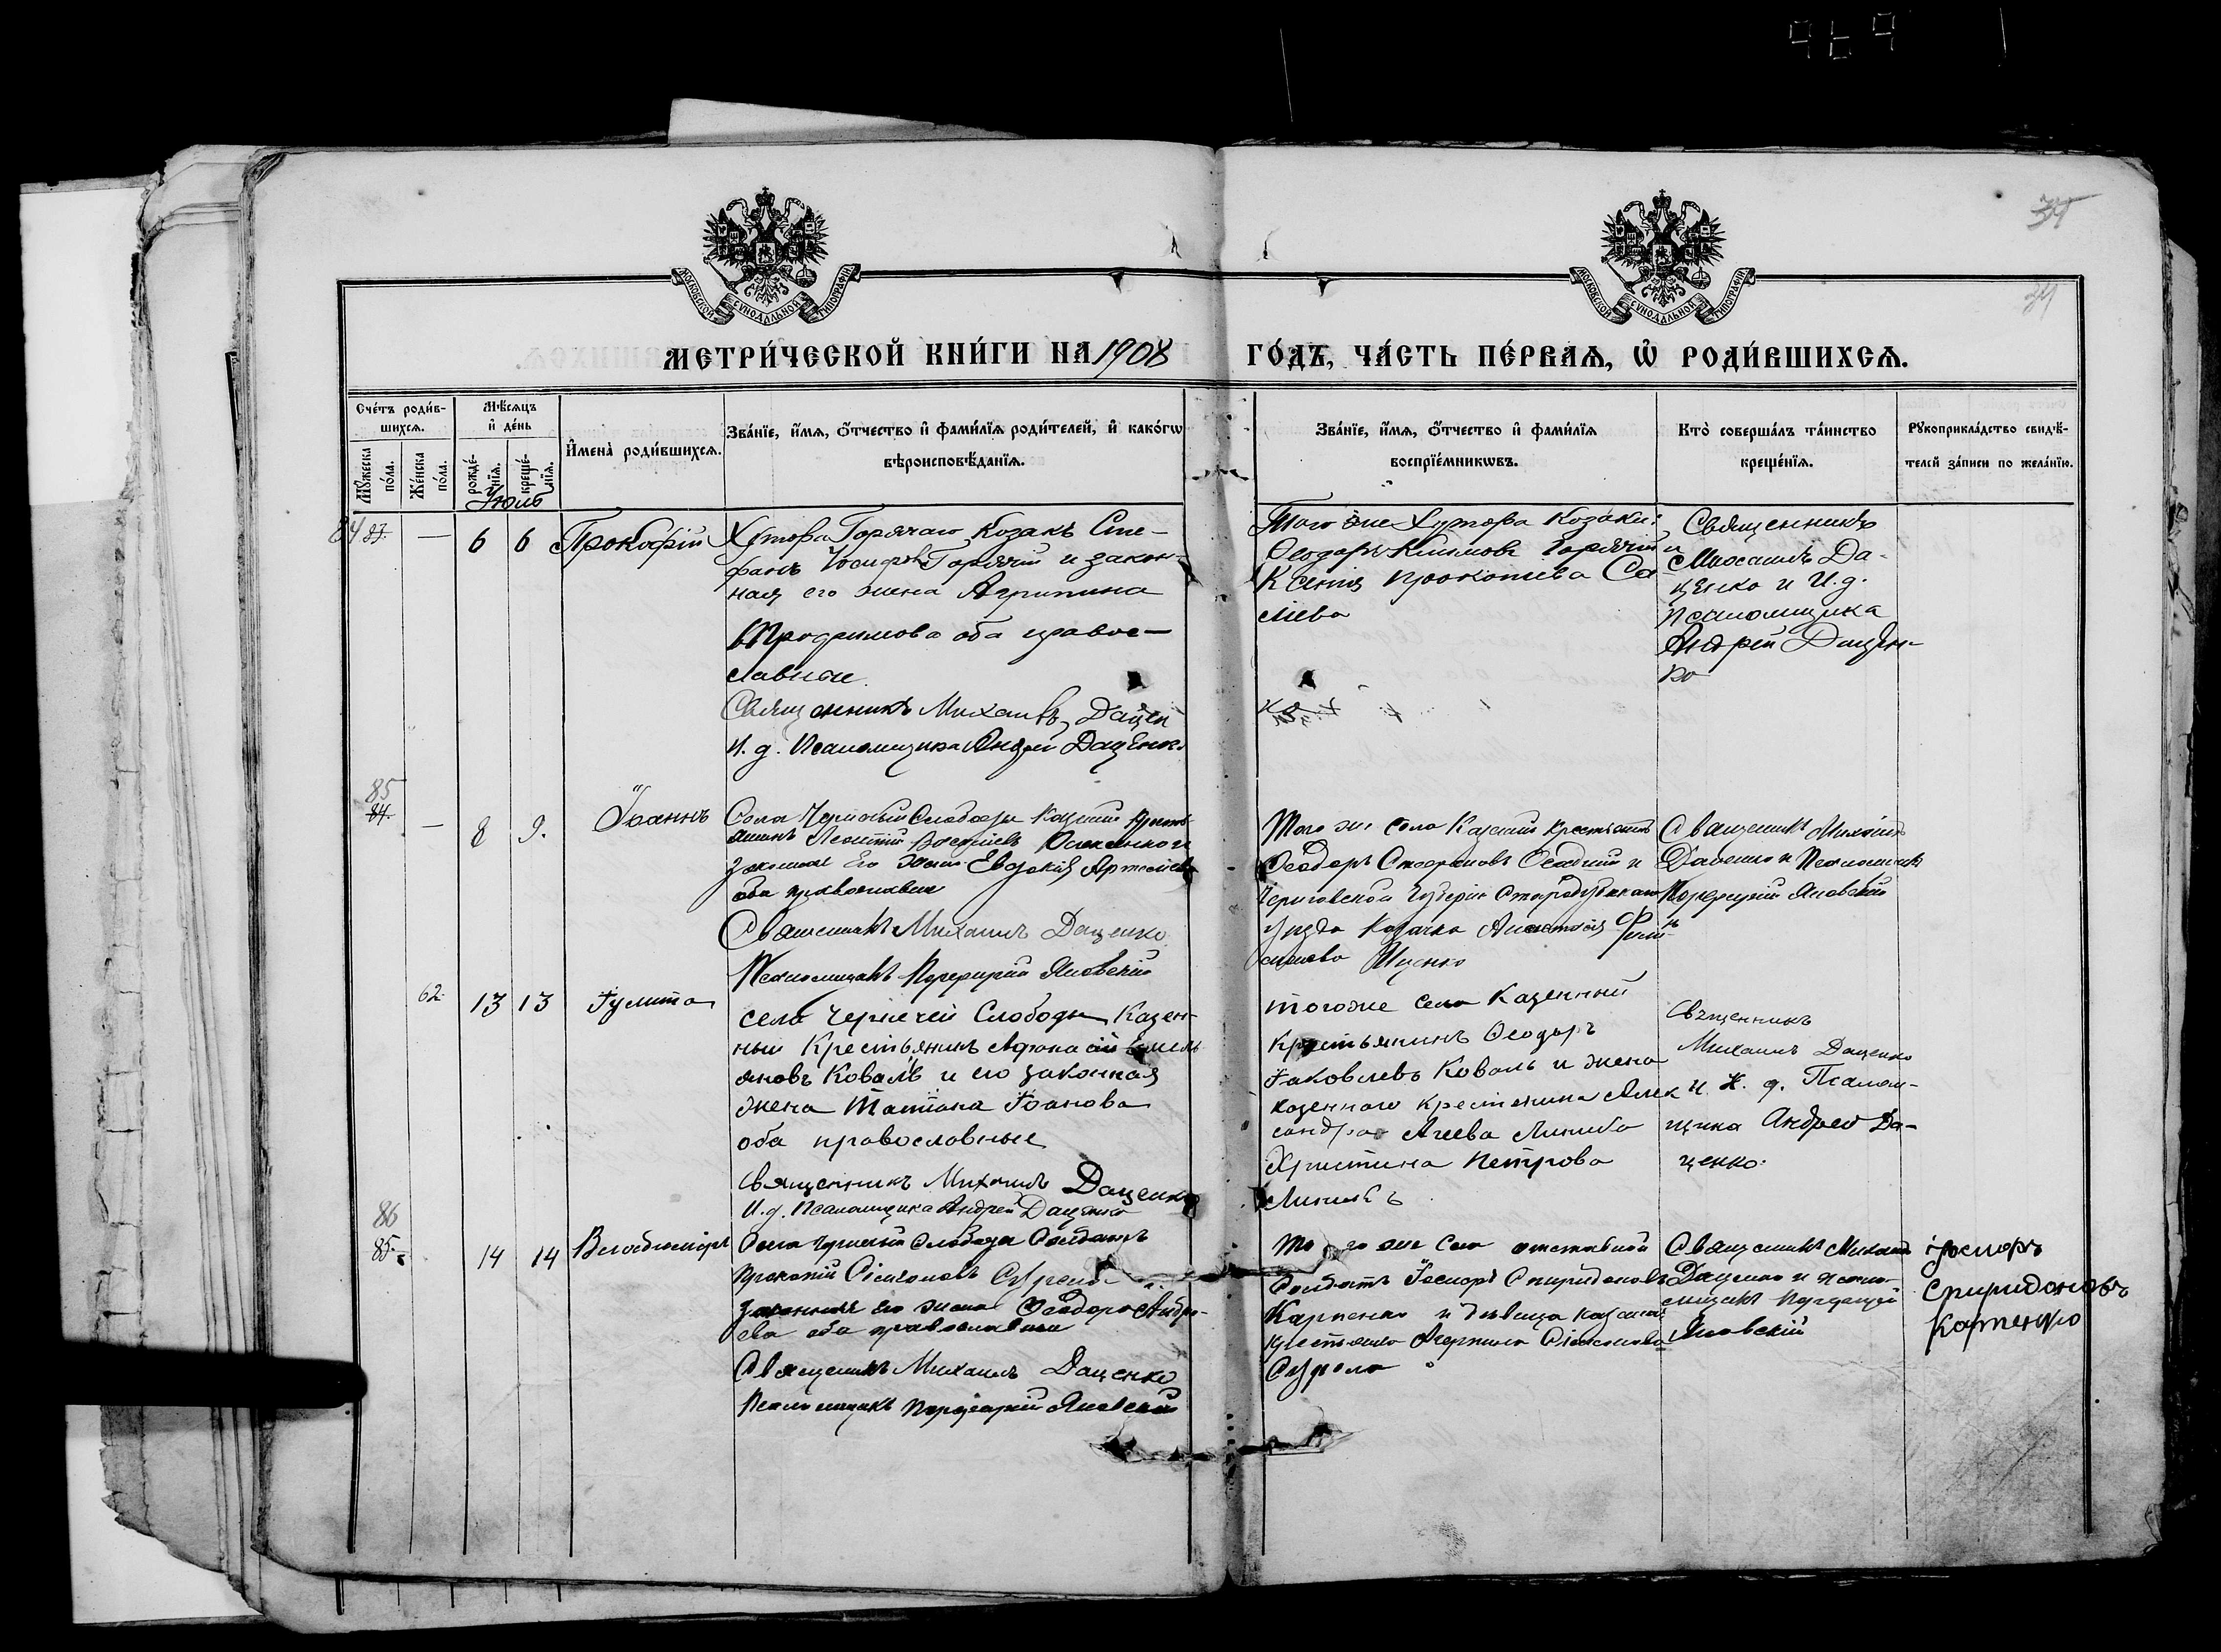 34
34
МОСКОВСКОЙ СѴНОДАЛЬНОЙ ТИПОГРАФІИ
МОСКОВСКОЙ СѴНОДАЛЬНОЙ ТИПОГРАФІИ
МЕТРИ́ЧЕСКОЙ КНИ́ГИ НА 1908 ГО́ДЪ, ЧА́СТЬ ПЕ́РВАЯ, Ѡ҆ РОДИ́ВШИХСЯ.
Сче́тъ роди́в-
шихся.
Мѣ́сяцъ
и҆ де́нь
Мꙋ́жеска
по́ла.
Же́нска
по́ла.
рожде́-
нїя.
креще́-
нїя.
И҆мена̀ роди́вшихся.
Зва́нїе, и҆́мя, ѻ҆́тчество и҆ фами́лїя роди́телей, и҆ како́гѡ
вѣроисповѣ́данїя.
Зва́нїе, и҆́мя, ѻ҆́тчество и҆ фами́лїя
воспрїе́мникѡвъ.
Кто̀ соверша́лъ та́инство
креще́нїя.
Рꙋкоприкла́дство свидѣ́-
телей за́писи по жела́нїю.
Июль
84 83. — 6 6 Прокофій
Хутора Горячаго Козакъ Сте-
фанъ Іосифовъ Горячій и закон-
ная его жена Агрипина
Трофимова оба право-
славные.
Священникъ Михаилъ Дацен
И. д. Псаломщика Андрей Даценко
Того же Хутора Козаки:
Ѳеодоръ Климовъ Горячій и
Ксенія Прокопіева Са
лієва
Священникъ
Михаилъ Да-
ценко и И. д.
псаломщика
Андрей Дацен-
ко
85
84. — 8 9. Іоаннъ
Села Чернечей Слободы Казений кресть-
янинъ Леонтій
законная Его Жена Евдокія Артеміева
оба православные
Священникъ Михаилъ Даценко
Псаломщикъ Порфирій Яновскій
Того же Села Казений крестьянинъ
Ѳеодоръ Стефановъ и
Черниговской Губерніи Стародубскаго
уезда Козачка Анастасія
Священникъ Михаилъ
Даценко и Псаломщикъ
Порфирій Яновскій
62. 13 13 Іулита
села Чернечей Слободы Казен-
ный Крестьянинъ Афонасій Емель
яновъ Коваль и его законная
жена Татіана Іоанова
оба православные
Священникъ Михаилъ Даценко
И. д. Псаломщика Андрей Даценко
тогоже села Казенный
крестьянинъ Ѳеодоръ
Іаковлевъ Коваль и жена
казенного крестянина Алек
сандра Агеева
Христина Петрова
Свщенникъ
Михаилъ Даценко
и И. д. Псалом-
щика Андрей Да-
ценко.
86
85. 14 14 Володимиръ
Села Чернечей Слободы Солдатъ
Прокопій
законная его жена Ѳеодора Андре-
ева оба православные
Священникъ Михаилъ Даценко
Псаломщикъ Порфирій Яновский
Того же Села отставной
Солдатъ Іосифъ Спиридоновъ
Карпенко и дѣвица казенная
крестьянка
Священникъ Михаилъ
Даценко и псало-
мщикъ Порфирій
Яновскій
Спиридоновъ
Карпенко